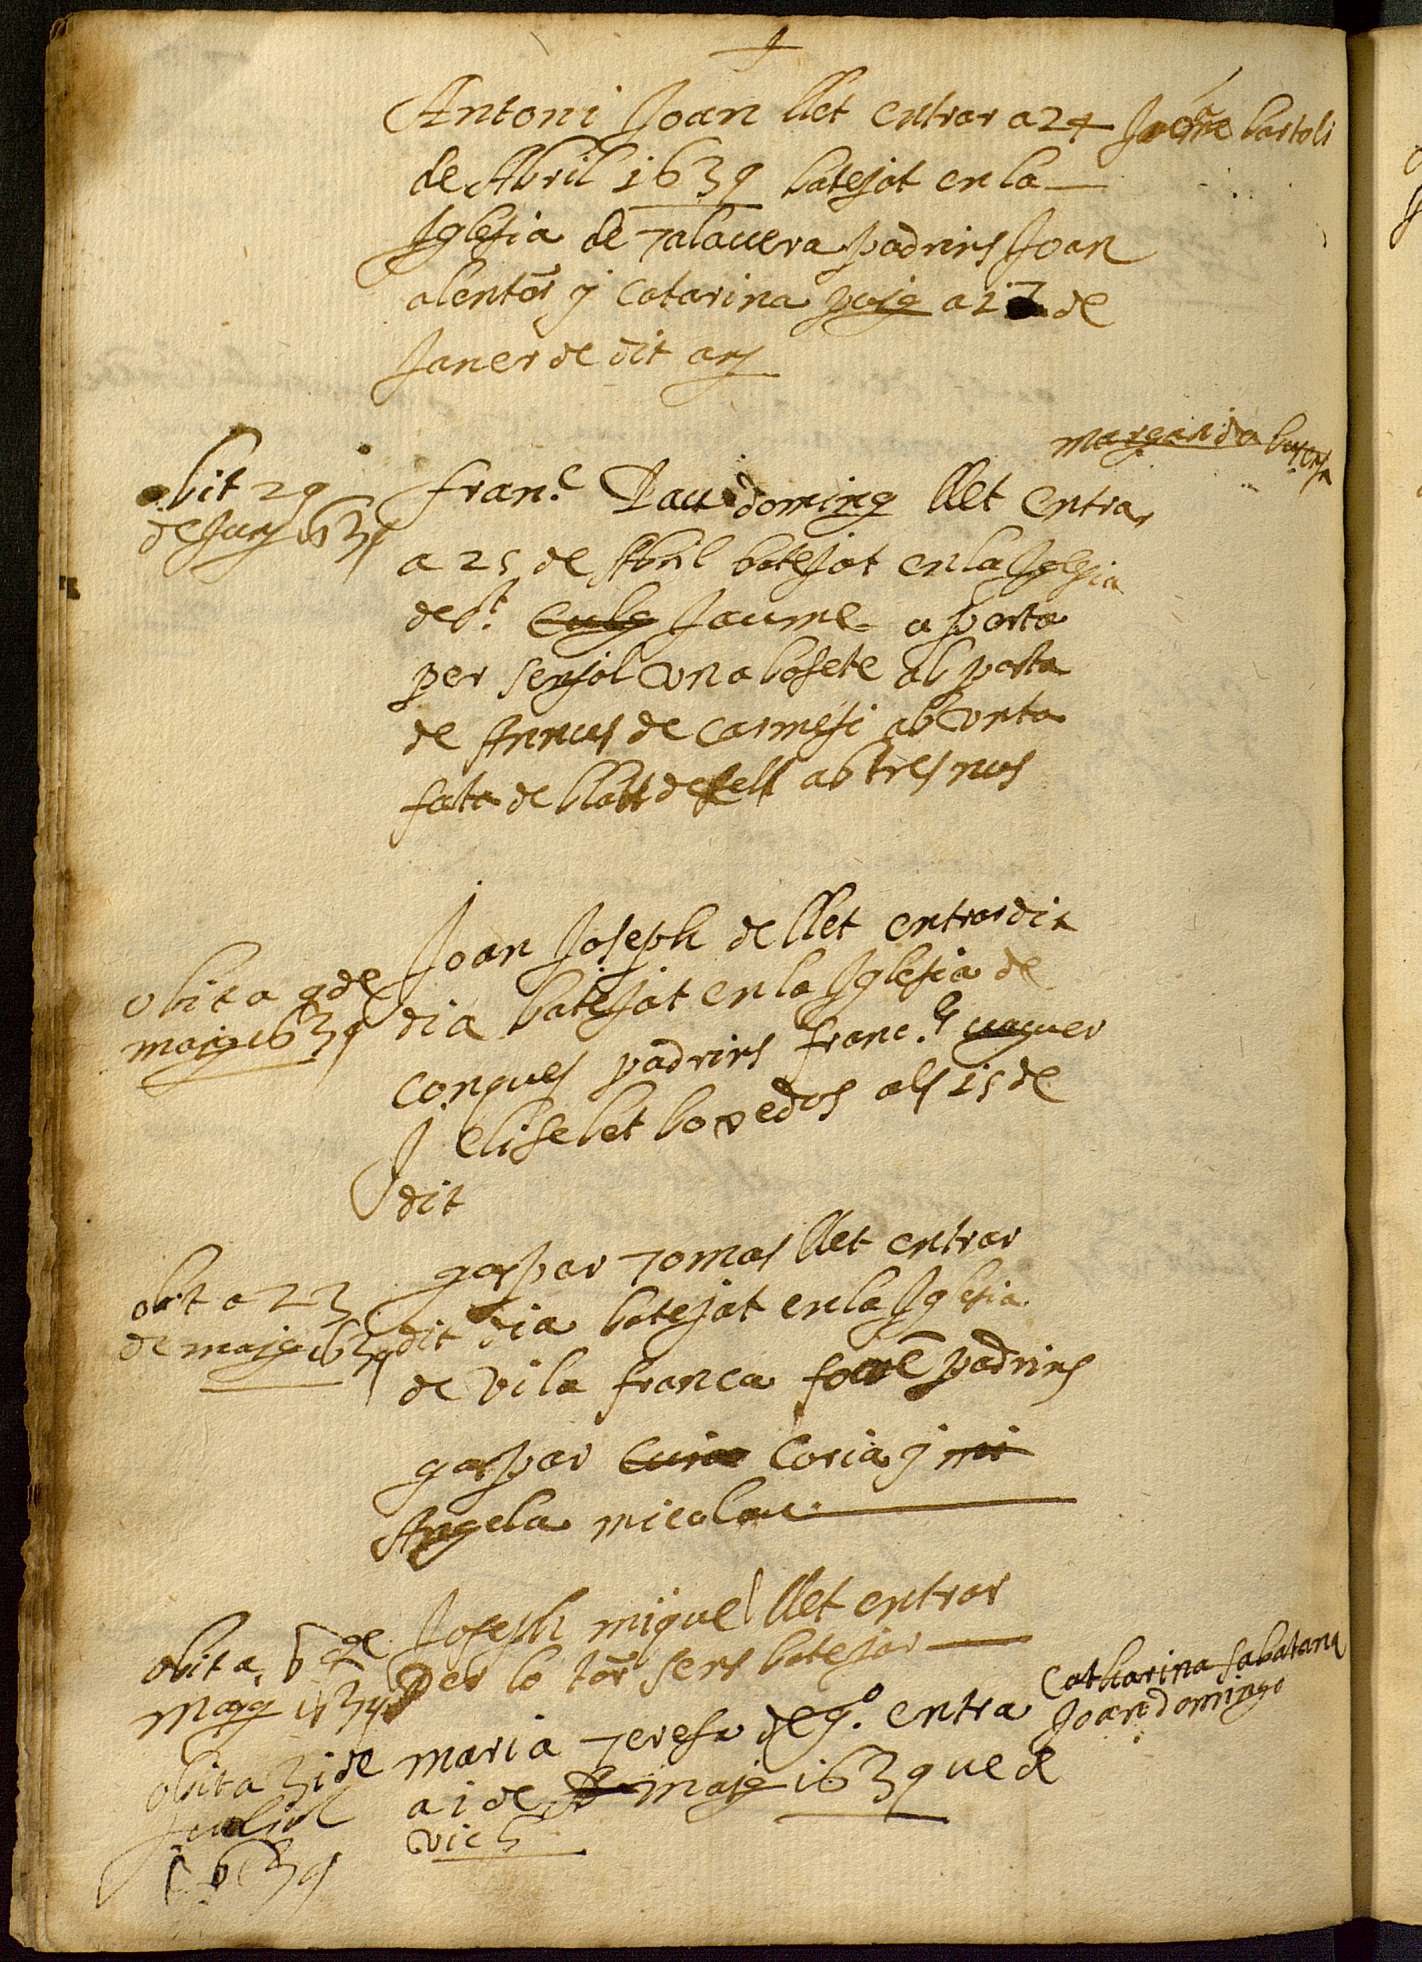 Antoni Joan llet entrar a 24
bartoli
de Abril 1639 batejat en la
Iglesia de talauera padrins Joan
alentor y Catarina puig a 27 de
Janer de dit anj
margarida
obit 29
de Junj 1639
fran.c Pau doming llet entrar
a 25 de Abril batejat en la Iglesia
de S.t Jaume aporta
per senyal vna bosete ab porta
de Armes de Carmesi ab vnta
fata de ab tres nus
obit a 9 de
maig 1639
Joan Joseph de llet entrar dit
dia batejat en la Iglesia de
Conques padrins franc.h
y elisebet als 15 de
dit
obit a 23
de maig 1639
gaspar tomas llet entrar
dit dia batejat en la Iglesia
de vila franca padrins
gaspar Coria y
Angela micolau
obit a 6 de
Maig 1639
Joseph miquel llet entrar
Per lo tor sens batejar
Catharina sabatana
Joan domingo
obit a 31 de
Juliol
1639
maria teresa de g.o entra
a 1 de maig 1639 ve de
vich